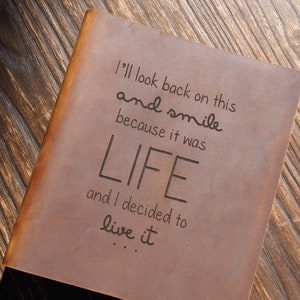 I'll look back on this
and smile
because it was
LIFE
and I decided to
live it
...